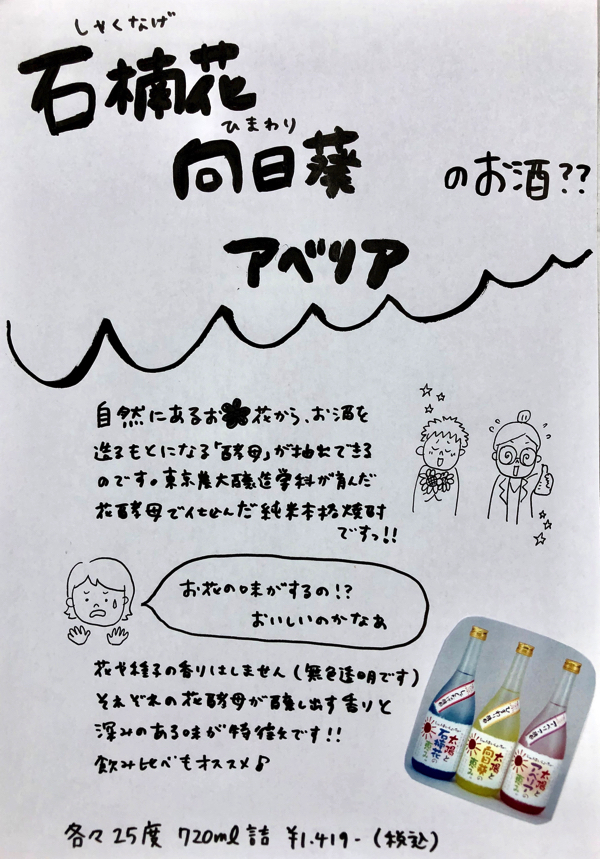 しゃくなげ
石楠花
ひまわり
向日葵
のお酒??
アベリア
自然にあるお花から、お酒を
造るもとになる「酵母」が抽出できる
のです。東京農大醸造学科が育んだ
花酵母で仕込んだ純米本格焼酎
ですっ!!
お花の味がするの!?
おいしいのかなぁ
花や種子の香りはしません(無色透明です)
それぞれの花酵母が醸し出す香りと
深みのある味が特徴です!!
飲み比べもオススメ♪
太陽と
石楠花の
恵み
太陽と
向日葵の
恵み
太陽と
アベリアの
恵み
各々25度 720ml詰 ¥1.419-(税込)